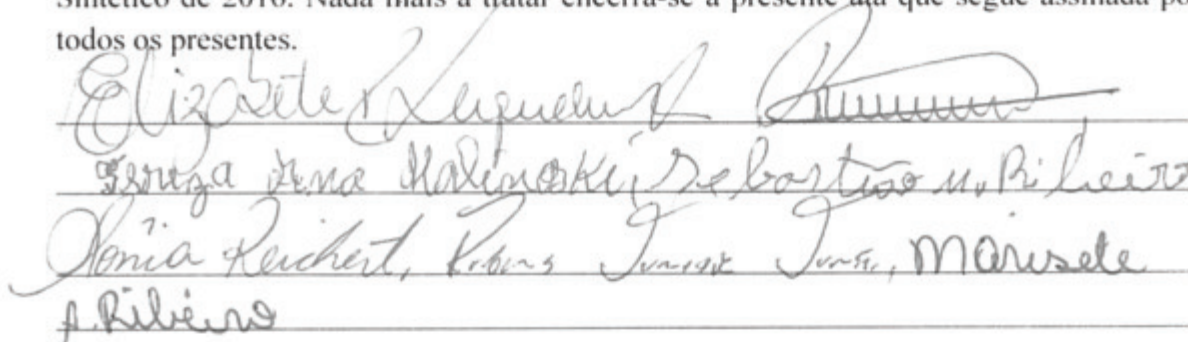 Sintético de 2016. Nada mais a tratar encerra-se a presente ata que segue assinada po
todos os presentes.
Elizabete
Tereza Irma Malinoski, Sebastião M. Ribeiro
Sônia Reichert, Marisete
A. Ribeiro